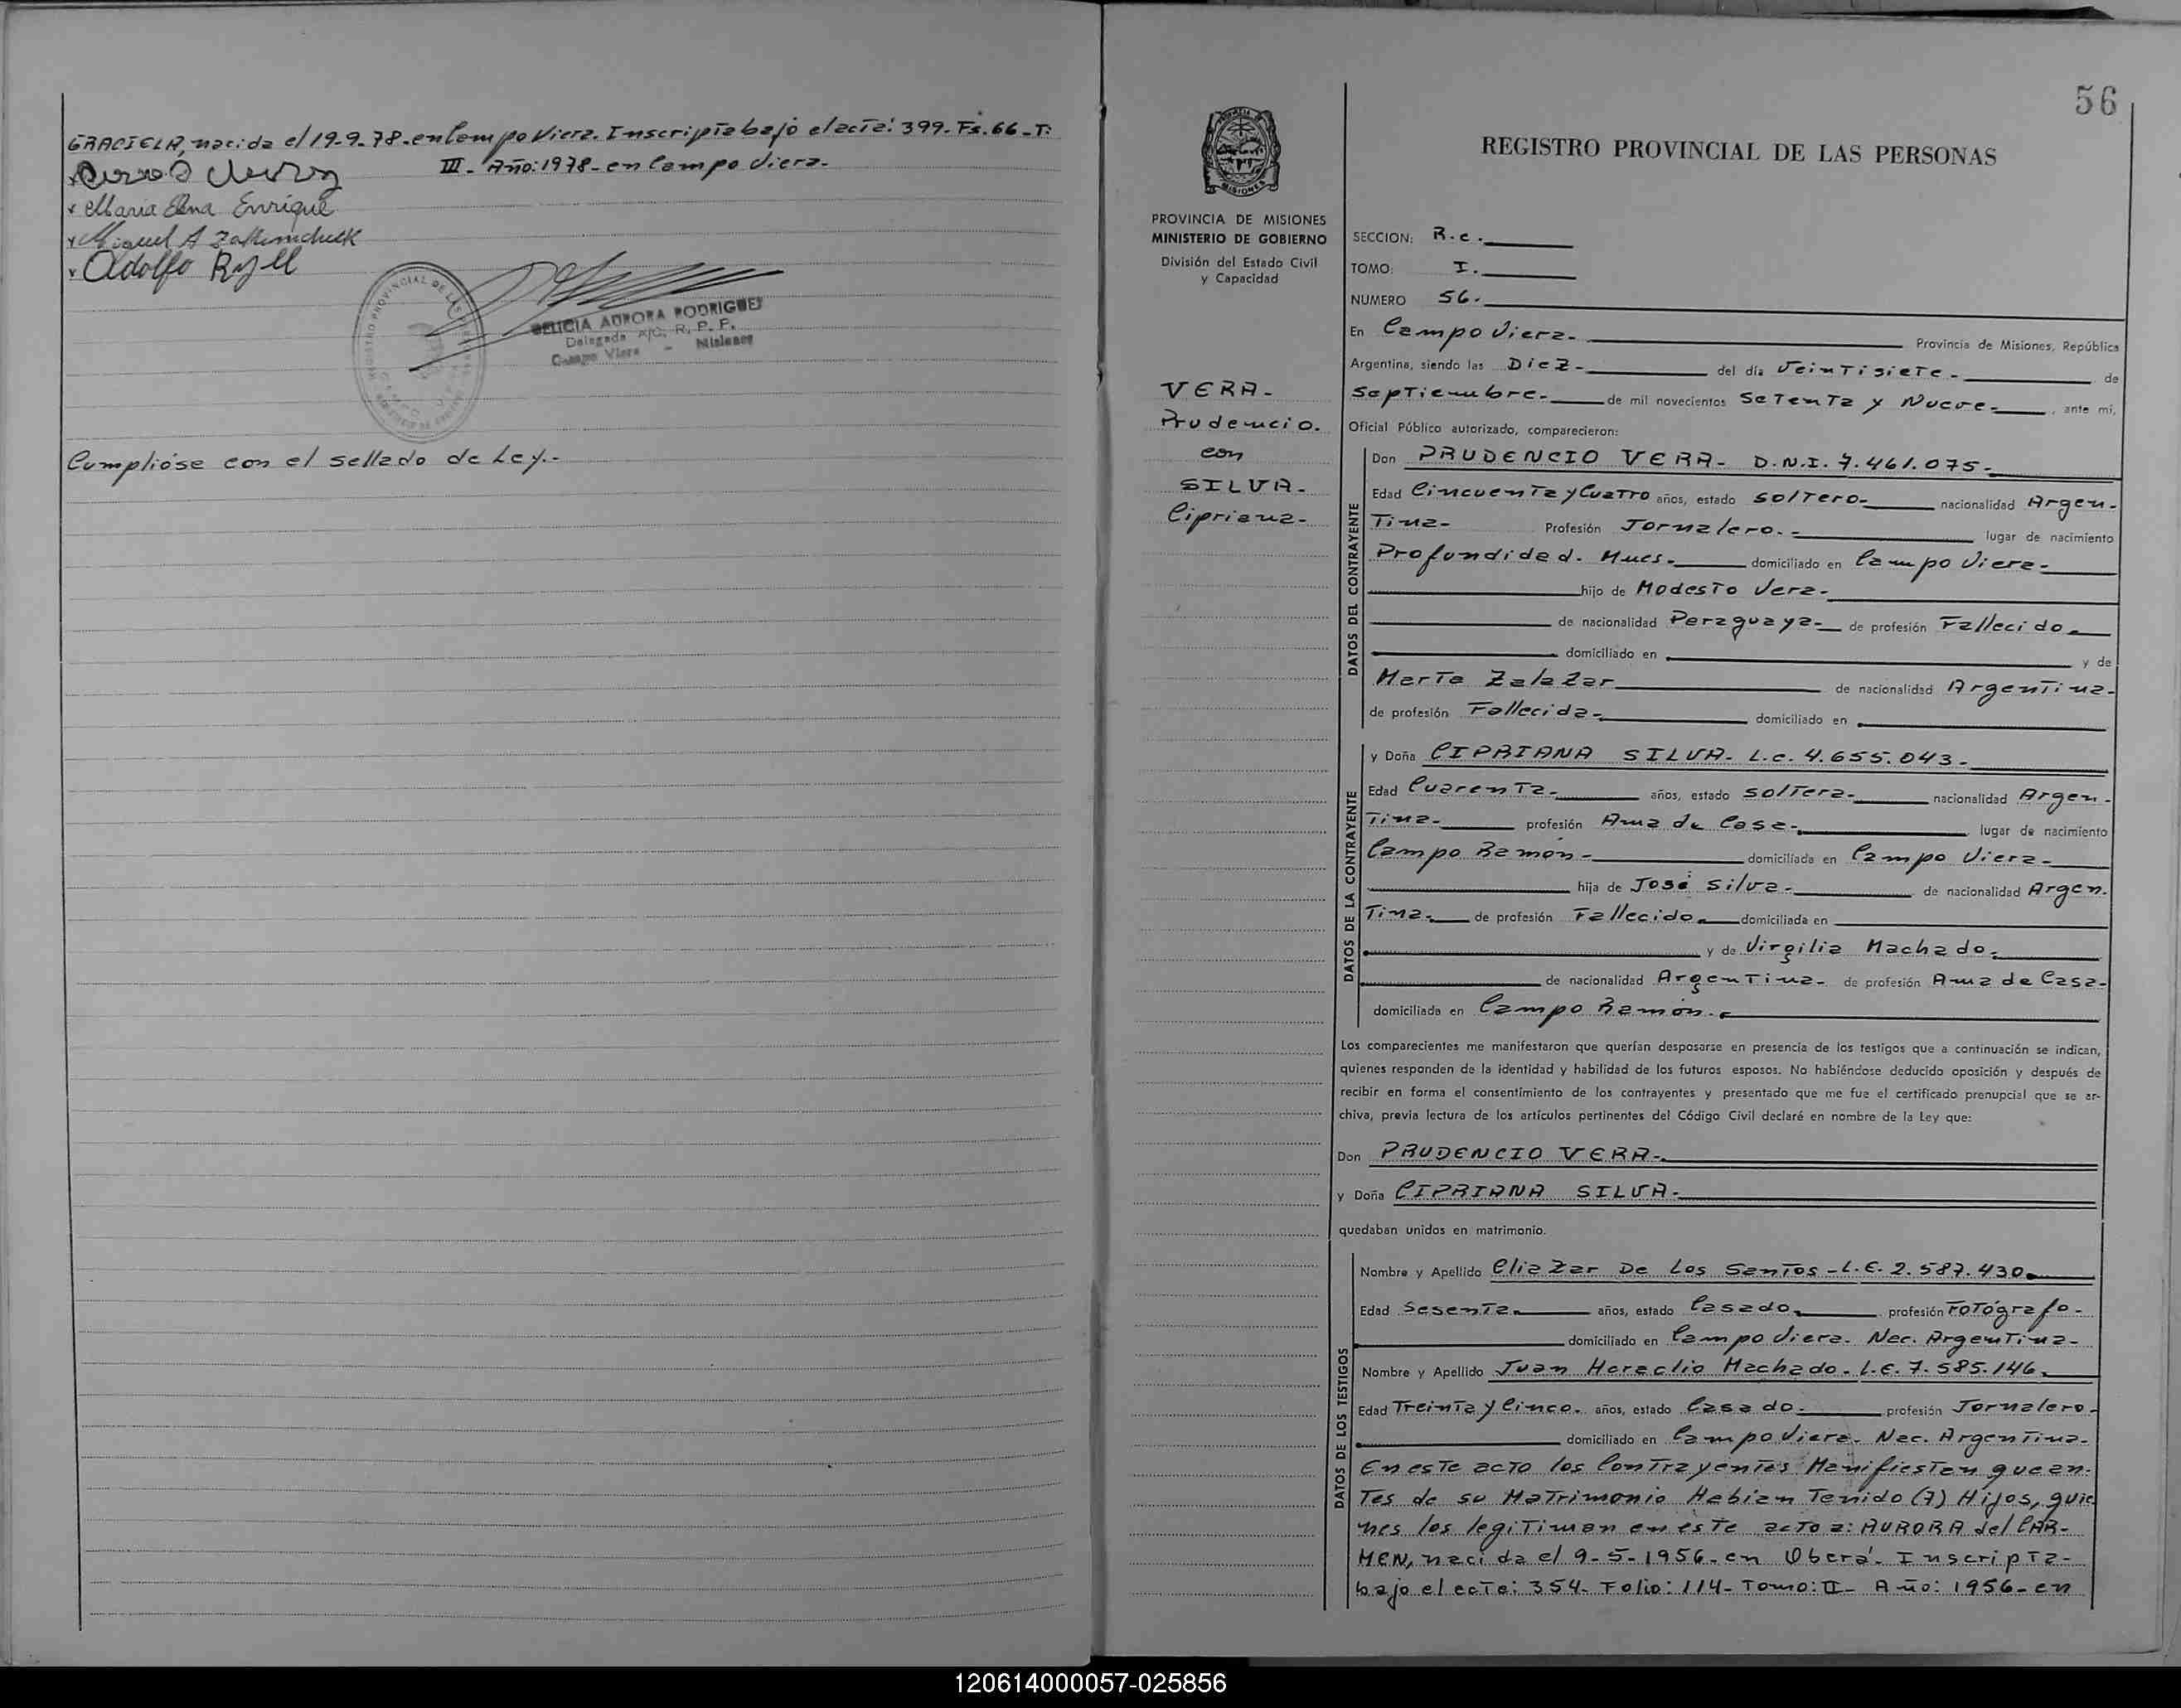 GRACIELA, nacida el 19-9-78-en Campo Viera. Inscripta bajo el acta: 399-Fs. 66-T:
III- Año: 1978-en Campo Viera-
x Maria Elna Enrique
x Miguel A
x Adolfo Ryll
DELICIA AURORA RODRIGUEZ
Delegada A/C. R. P. P.
Campo Viera - Misiones
Cumplióse con el sellado de Ley.-
56
REGISTRO PROVINCIAL DE LAS PERSONAS
MISIONES
PROVINCIA DE MISIONES
MINISTERIO DE GOBIERNO
División del Estado Civil
y Capacidad
VERA-
Prudencio.
con
SILVA-
Cipriana-
SECCION: R.c.
TOMO: I.
NUMERO 56.
En Campo Viera- Provincia de Misiones, República
Argentina, siendo las Diez- del día Veintisiete- de
Septiembre- de mil novecientos Setenta y Nueve- , ante mí,
Oficial Público autorizado, comparecieron:
DATOS DEL CONTRAYENTE
Don PRUDENCIO VERA- D.N.I. 7.461.075-
Edad Cincuenta y Cuatro años, estado Soltero- nacionalidad Argen-
Tina- Profesión Jornalero.- lugar de nacimiento
Profundidad. Mnes- domiciliado en Campo Viera-
hijo de Modesto Vera-
de nacionalidad Paraguaya- de profesión Fallecido-
domiciliado en y de
Marta Zalazar de nacionalidad Argentina-
de profesión Fallecida- domiciliado en
DATOS DE LA CONTRAYENTE
y Doña CIPRIANA SILVA- L.C. 4.655.043-
Edad Cuarenta- años, estado Soltera- nacionalidad Argen-
Tina- profesión Ama de Casa- lugar de nacimiento
Campo Ramón- domiciliada en Campo Viera-
hija de José Silva- de nacionalidad Argen-
Tina- de profesión Fallecido- domiciliada en
y de Virgilia Machado-
de nacionalidad Argentina- de profesión Ama de Casa-
domiciliada en Campo Ramón.-
Los comparecientes me manifestaron que querían desposarse en presencia de los testigos que a continuación se indican,
quienes responden de la identidad y habilidad de los futuros esposos. No habiéndose deducido oposición y después de
recibir en forma el consentimiento de los contrayentes y presentado que me fue el certificado prenupcial que se ar-
chiva, previa lectura de los artículos pertinentes del Código Civil declaré en nombre de la Ley que:
Don PRUDENCIO VERA-
y Doña CIPRIANA SILVA-
quedaban unidos en matrimonio.
DATOS DE LOS TESTIGOS
Nombre y Apellido Eliazar De Los Santos-L.E. 2.587.430-
Edad Sesenta- años, estado Casado- profesión Fotógrafo-
domiciliado en Campo Viera- Nac. Argentina-
Nombre y Apellido Juan Heraclio Machado- L.E. 7.585.146-
Edad Treinta y Cinco- años, estado Casado- profesión Jornalero-
domiciliado en Campo Viera- Nac. Argentina-
En este acto los Contrayentes Manifiestan que an-
Tes de su Matrimonio Habian Tenido (7) Hijos, quie
nes los legitiman en este acto a: AURORA del CAR-
MEN, nacida el 9-5-1956-en Oberá- Inscripta-
bajo el acta: 354- Folio: 114- Tomo: II- Año: 1956-en
120614000057-025856